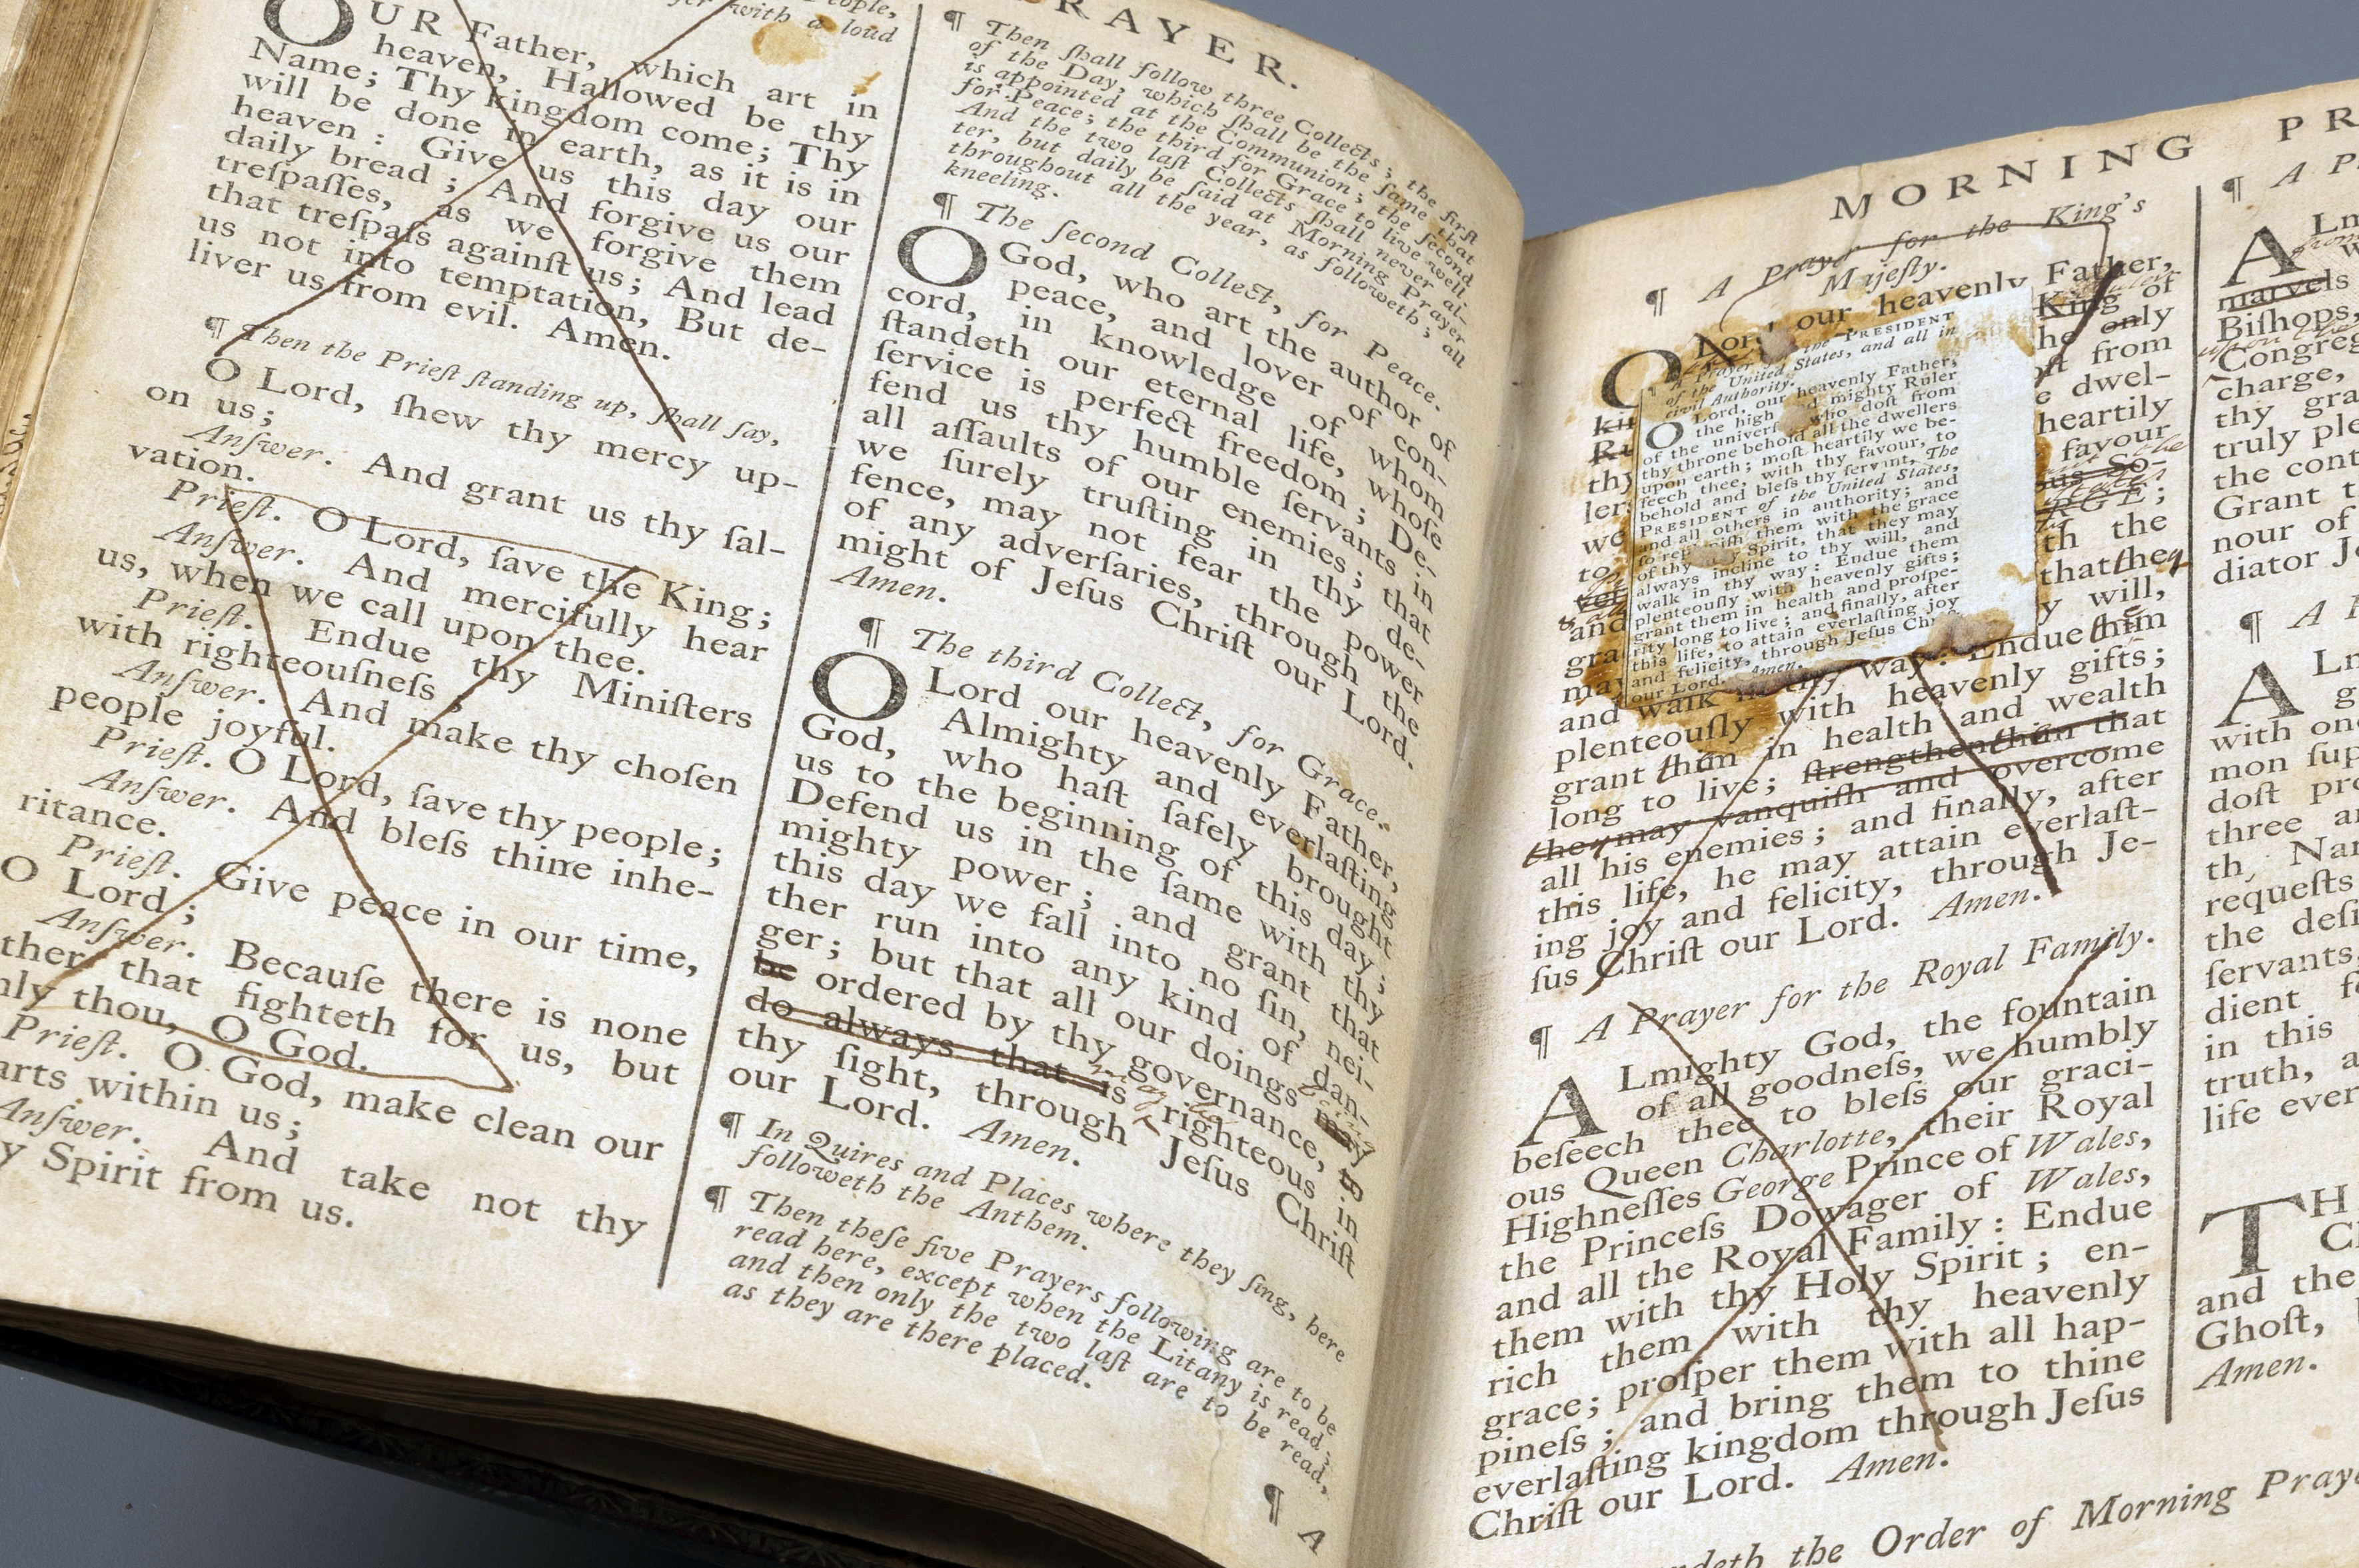 ople,
er with a loud
OUR Father, which art in
heaven, Hallowed be thy
Name; Thy kingdom come; Thy
will be done in earth, as it is in
heaven: Give us this day our
daily bread; And forgive us our
treſpaſſes, as we forgive them
that treſpaſs againſt us; And lead
us not into temptation, But de-
liver us from evil. Amen.
¶ Then the Prieſt ſtanding up, ſhall ſay,
O Lord, ſhew thy mercy up-
on us;
Anſwer. And grant us thy ſal-
vation.
Prieſt. O Lord, ſave the King;
Anſwer. And mercifully hear
us, when we call upon thee.
Prieſt. Endue thy Miniſters
with righteouſneſs;
Anſwer. And make thy choſen
people joyful.
Prieſt. O Lord, ſave thy people;
Anſwer. And bleſs thine inhe-
ritance.
Prieſt. Give peace in our time,
O Lord;
Anſwer. Becauſe there is none
ther that fighteth for us, but
nly thou, O God.
Prieſt. O God, make clean our
arts within us;
Anſwer. And take not thy
y Spirit from us.
PRAYER.
¶ Then ſhall follow three Collects; the firſt
of the Day, which ſhall be the ſame that
is appointed at the Communion; the ſecond
for Peace; the third for Grace to live well.
And the two laſt Collects ſhall never al-
ter, but daily be ſaid at Morning Prayer
throughout all the year, as followeth; all
kneeling.
¶ The ſecond Collect, for Peace.
O God, who art the author of
peace, and lover of con-
cord, in knowledge of whom
ſtandeth our eternal life, whoſe
ſervice is perfect freedom; De-
fend us thy humble ſervants in
all aſſaults of our enemies; that
we ſurely truſting in thy de-
fence, may not fear the power
of any adverſaries, through the
might of Jeſus Chriſt our Lord.
Amen.
¶ The third Collect, for Grace.
O Lord our heavenly Father,
Almighty and everlaſting
God, who haſt ſafely brought
us to the beginning of this day;
Defend us in the ſame with thy
mighty power; and grant that
this day we fall into no ſin, nei-
ther run into any kind of dan-
ger; but that all our doings may being
be ordered by thy governance, to
do always that is may be righteous in
thy ſight, through Jeſus Chriſt
our Lord. Amen.
¶ In Quires and Places where they ſing, here
followeth the Anthem.
¶ Then theſe five Prayers following are to be
read here, except when the Litany is read;
and then only the two laſt are to be read,
as they are there placed.
¶ A
MORNING PR
¶ A Prayer for the King's
Majeſty.
O Lord our heavenly Father,
King of
he only
oſt from
e dwel-
heartily
favour
So-
RGE;
th the
that they
y will,
and walk in thy way: Endue him
plenteouſly with heavenly gifts;
grant him in health and wealth
long to live; ſtrengthen him that
they may vanquiſh and overcome
all his enemies; and finally, after
this life, he may attain everlaſt-
ing joy and felicity, through Je-
ſus Chriſt our Lord. Amen.
A Prayer for the PRESIDENT
of the United States, and all in
civil Authority.
O Lord, our heavenly Father,
the high and mighty Ruler
of the univerſe who doſt from
thy throne behold all the dwellers
upon earth; moſt heartily we be-
ſeech thee, with thy favour, to
behold and bleſs thy ſervant, The
PRESIDENT of the United States,
and all others in authority; and
ſo repleniſh them with the grace
of thy Holy Spirit, that they may
always incline to thy will, and
walk in thy way: Endue them
plenteouſly with heavenly gifts;
grant them in health and proſpe-
rity long to live; and finally, after
this life, to attain everlaſting joy
and felicity, through Jeſus Chri
our Lord. Amen.
¶ A Prayer for the Royal Family.
ALmighty God, the fountain
of all goodneſs, we humbly
beſeech thee to bleſs our graci-
ous Queen Charlotte, their Royal
Highneſſes George Prince of Wales,
the Princeſs Dowager of Wales,
and all the Royal Family: Endue
them with thy Holy Spirit; en-
rich them with thy heavenly
grace; proſper them with all hap-
pineſs; and bring them to thine
everlaſting kingdom through Jeſus
Chriſt our Lord. Amen.
¶ A P
ALm
marvels
Biſhops,
Congreg
charge,
thy gra
truly ple
the cont
Grant t
nour of
diator Je
¶ A
ALm
g
with one
mon ſup
doſt pro
three a
th, Nam
requeſts
the deſi
ſervants,
dient fo
in this
truth, a
life ever
TH
Ch
and the
Ghoſt,
Amen.
ndeth the Order of Morning Praye